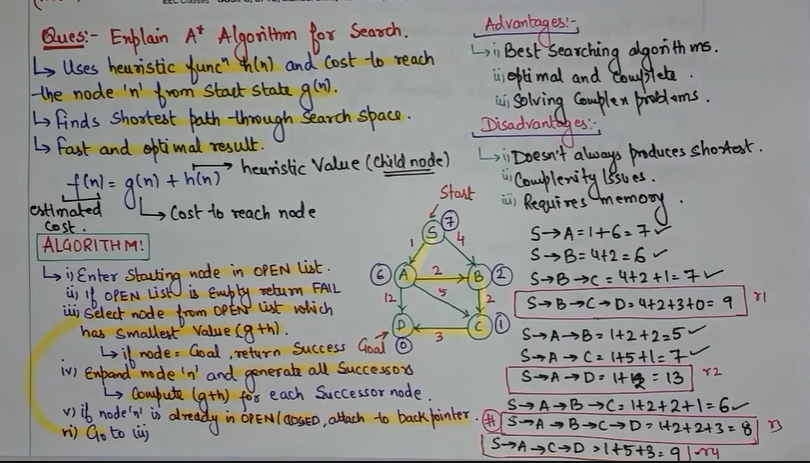 Ques:- Explain A* Algorithm for Search.
↳ Uses heuristic funcⁿ h(n) and cost to reach
the node 'n' from start state g(n).
↳ finds Shortest path through Search space.
↳ Fast and optimal result.
f(n) = g(n) + h(n) → heuristic Value (Child node)
estimated cost.
↳ Cost to reach node
ALGORITHM:
↳ i) Enter Starting node in OPEN list.
ii) If OPEN List is Empty return FAIL
iii) Select node from OPEN list which
has Smallest Value (g+h).
↳ if node = Goal, return Success
iv) Expand node 'n' and generate all Successors
↳ Compute (g+h) for each Successor node.
v) if node 'n' is already in OPEN/CLOSED, attach to backpointer.
vi) Go to (iii)
Start
S 7
1 4
6 A 2 B 2
12 5 2
D C 1
Goal 0 3
Advantages:-
↳ i) Best Searching algorithms.
ii) optimal and Complete.
iii) Solving Complex problems.
Disadvantages:-
↳ i) Doesn't always produces shortest.
ii) Complexity Issues.
iii) Requires memory.
S→A = 1+6 = 7 ✓
S→B = 4+2 = 6 ✓
S→B→C = 4+2+1 = 7 ✓
S→B→C→D = 4+2+3+0 = 9 r1
S→A→B = 1+2+2 = 5 ✓
S→A→C = 1+5+1 = 7 ✓
S→A→D = 1+12 = 13 r2
S→A→B→C = 1+2+2+1 = 6 ✓
# S→A→B→C→D = 1+2+2+3 = 8 r3
S→A→C→D = 1+5+3 = 9 r4